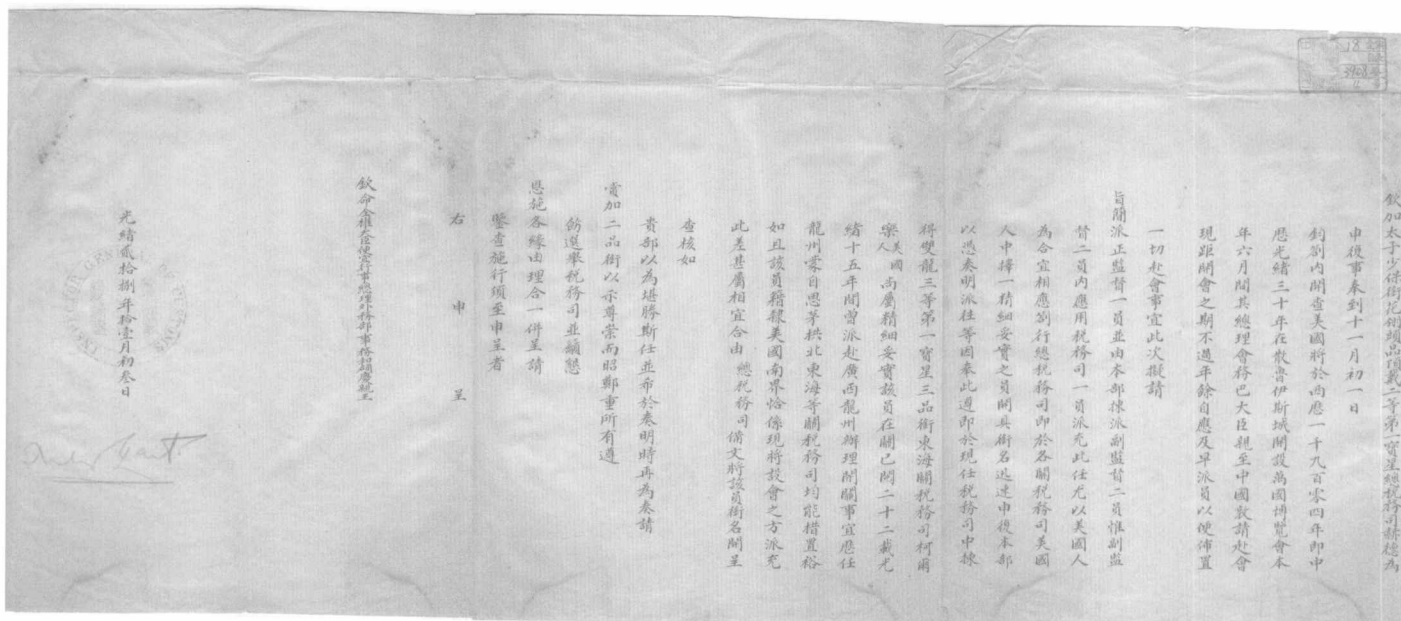 欽加太子少保銜花翎頭品頂戴二等第一寶星總稅務司赫德為
申復事奉到十一月初一日
鈞劄內開查美國將於西歷一千九百零四年即中
歷光緒三十年在散魯伊斯城開設萬國博覽會本
年六月間其總理會務巴大臣親至中國敦請赴會
現距開會之期不過年餘自應及早派員以便佈置
一切赴會事宜此次擬請
旨簡派正監督一員並由本部揀派副監督二員惟副監
督二員內應用稅務司一員派充此任尤以美國人
為合宜相應劄行總稅務司即於各關稅務司美國
人中擇一精細妥實之員開具銜名迅速申復本部
以憑奏明派往等因奉此遵即於現任稅務司中揀
得雙龍三等第一寶星三品銜東海關稅務司柯爾
樂美國人尚屬精細妥實該員在關已閱二十二載光
緒十五年間曾派赴廣西龍州辦理開關事宜歷任
龍州蒙自思茅拱北東海等關稅務司均能措置裕
如且該員籍隸美國南界恰係現將設會之方派充
此差甚屬相宜合由 總稅務司備文將該員銜名開呈
查核如
貴部以為堪勝斯任並希於奏明時再為奏請
賞加二品銜以示尊崇而昭鄭重所有遵
飭選舉稅務司並籲懇
恩施各緣由理合一併呈請
鑒查施行須至申呈者
右 申 呈
欽命全權大臣便宜行事總理外務部事務和碩慶親王
光緒貳拾捌年拾壹月初叁日
INSPECTOR GENERAL OF CUSTOMS
Robert Hart
18
3948